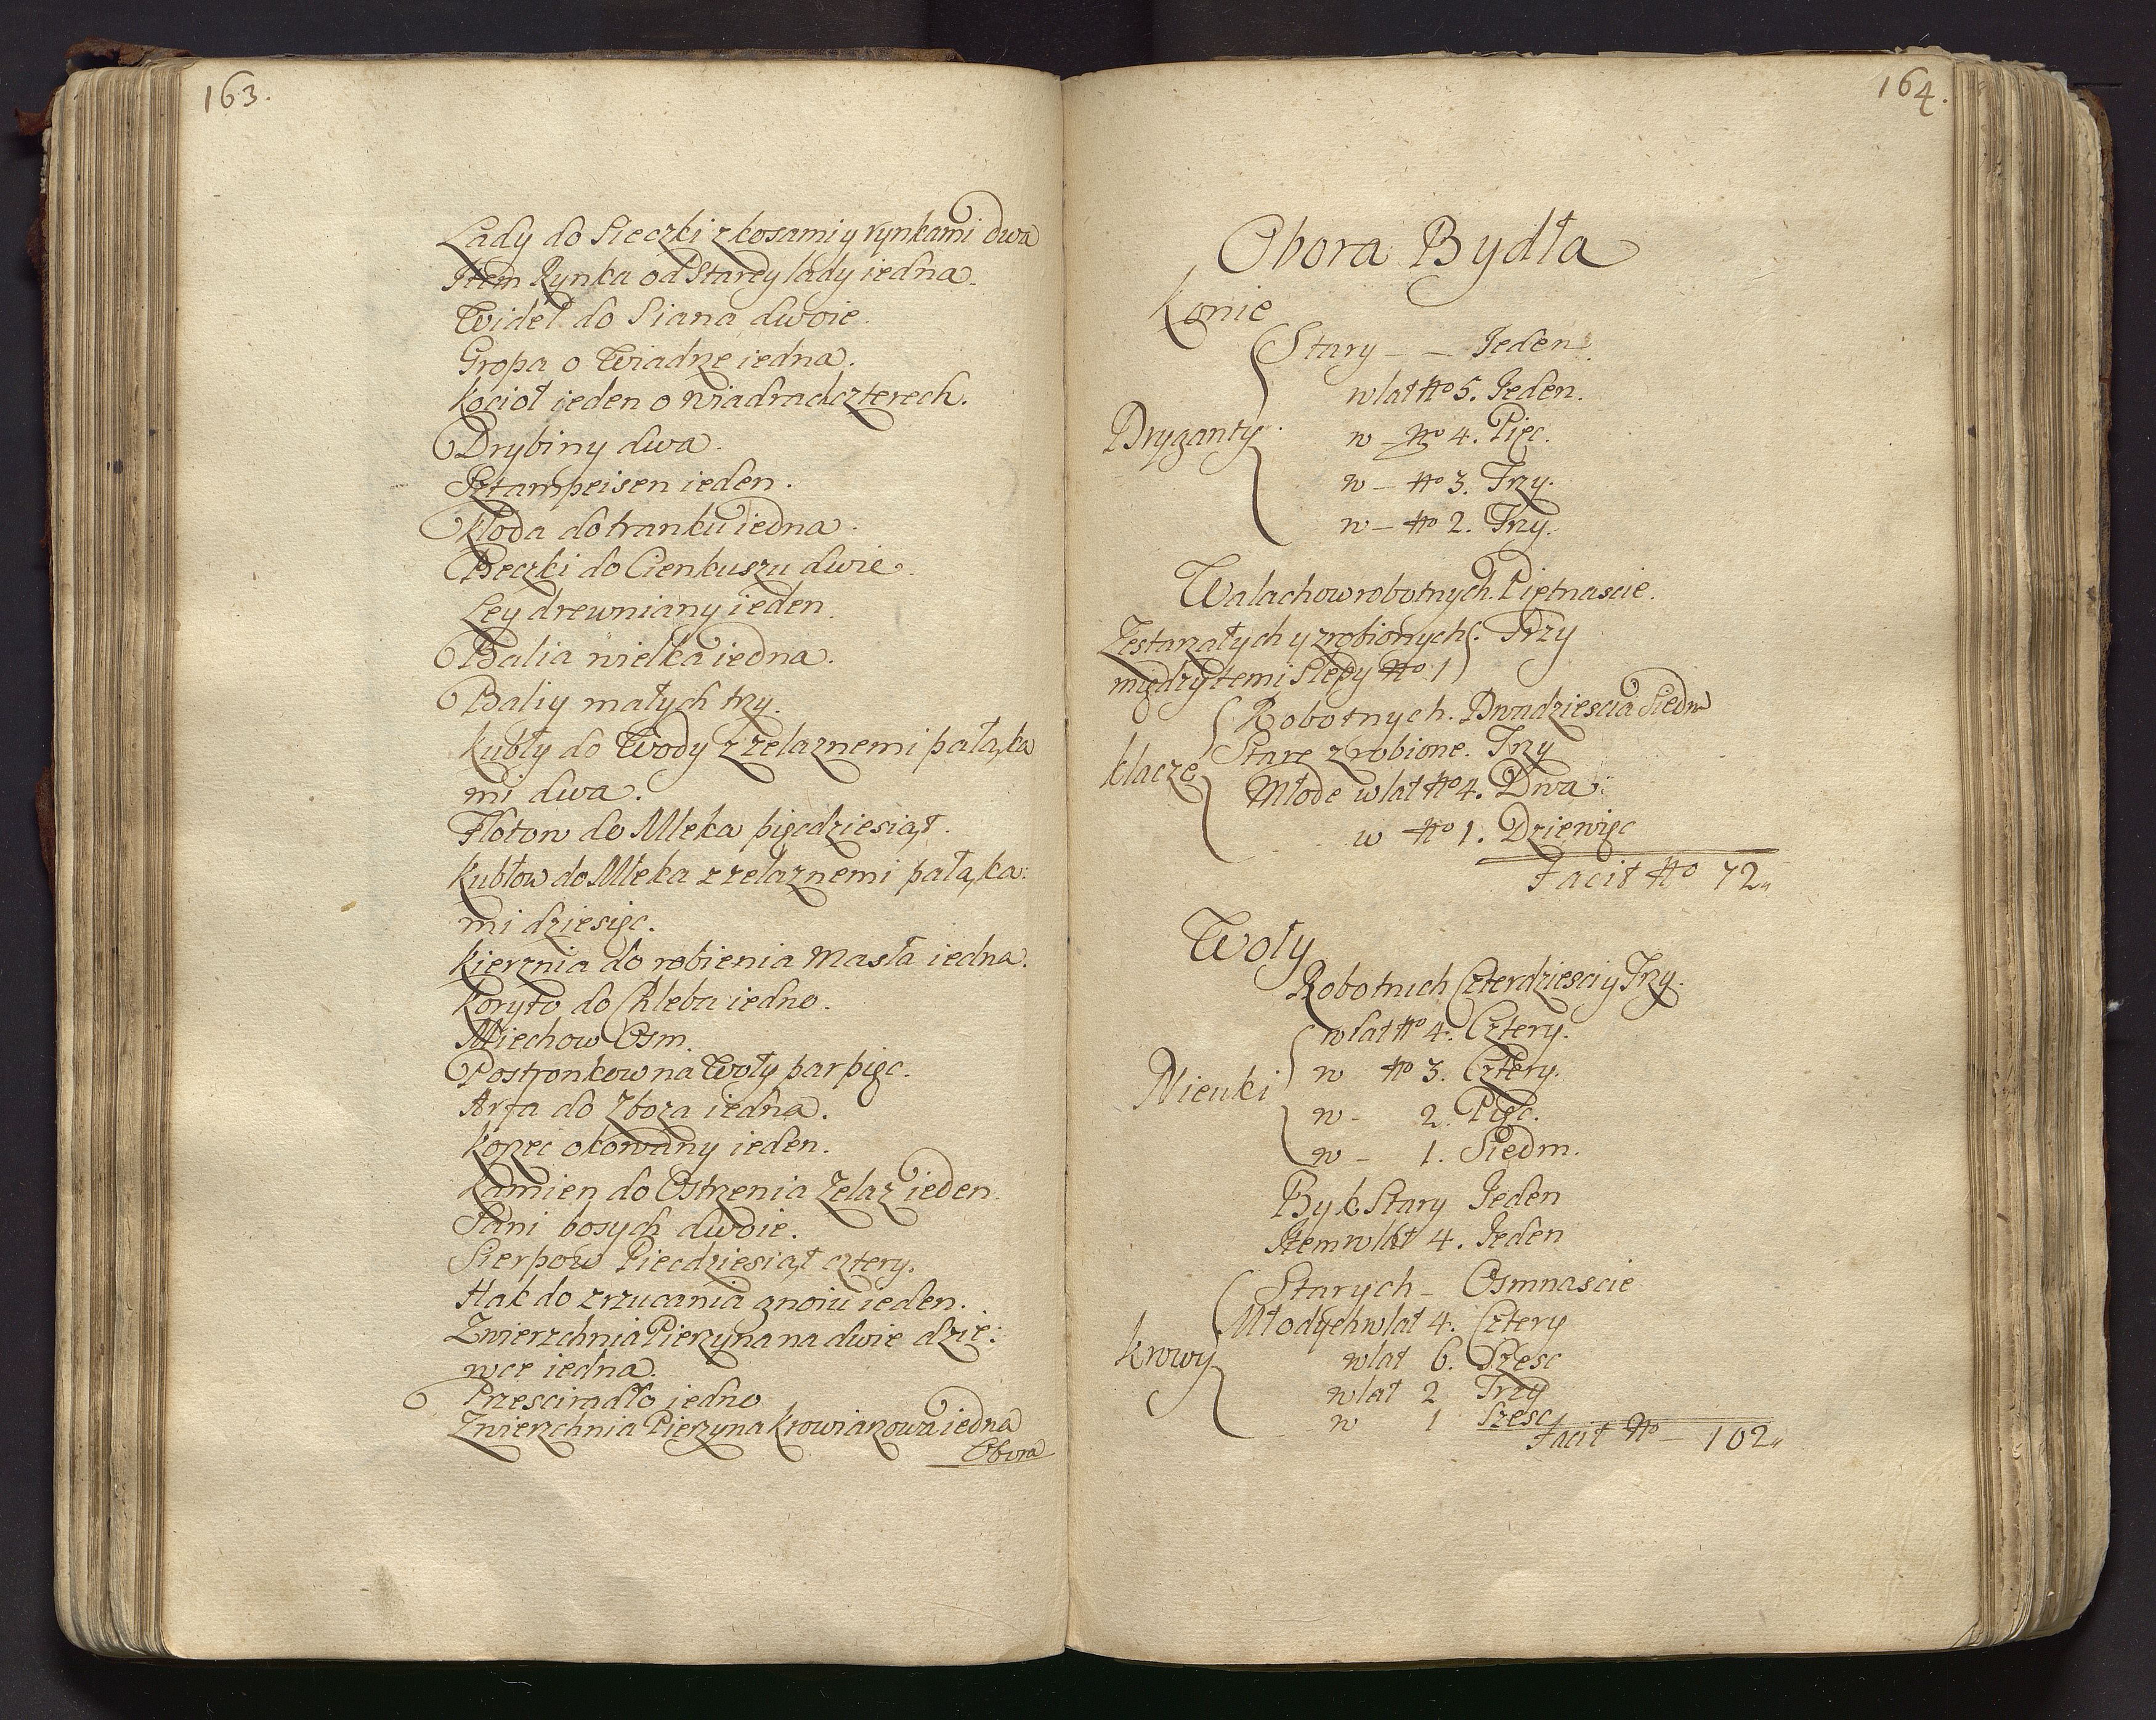 163.
Lady do Sieczki z kosami y rynkami dwa
Item Rynka od Starey lady iedna.
Widel do Siana dwoie.
Gropa o Wiadrze iedna.
Kocioł ieden o wiadrach czterech.
Drybiny dwa.
Sztampeisen ieden.
Kłoda do tranku iedna.
Beczki do Cienkuszu dwie.
Ley drewniany ieden.
Balia wielka iedna.
Baliy małych trzy.
Kubły do Wody z zelaznemi pałąka
mi dwa.
Flotow do Mleka pięcdziesiąt.
Kubłow do Mleka z zelaznemi pałąka:
mi dziesięc.
Kierznia do robienia Masła iedna.
Koryto do Chleba iedno.
Miechow Osm.
Postronkow na Woły par pięc.
Arfa do Zboza iedna.
Kopec okowany ieden.
Kamien do Ostrzenia Zelaz ieden.
Sani bosych dwoie.
Sierpow Piecdziesiąt cztery.
Hak do zrzucania gnoiu ieden.
Zwierzchnia Pierzyna na dwie dzie:
wce iedna.
Przescieradło iedno
Zwierzchnia Pierzyna Krowiarzowa iedna
Obora
164.
Obora Bydła
Konie
Stary - - Ieden.
w lat No 5. Ieden.
Dryganty w - No 4. Pięc.
w - No 3. Trzy.
w - No 2. Trzy.
Walachow robotnych Piętnascie.
Zestarzałych y zrobionych. Trzy
między temi Slepy No 1
Robotnych. Dwadziescia Siedm
Klacze Stare zrobione. Trzy
Młode w lat No 4. Dwa.
w No 1. Dziewięc
Facit No 72"
Woły
Robotnich Czterdziesci y Trzy.
w lat No 4. Cztery.
Nieuki w No 3. Cztery.
w - 2. Pięc.
w - 1. Siedm.
Byk Stary Ieden
Item w lat 4. Ieden
Starych - Osmnascie
Młodych w lat 4. Cztery
Krowy w lat 6. Szesc
w lat 2 Trzy
w 1 Szesc
Facit No - 102"